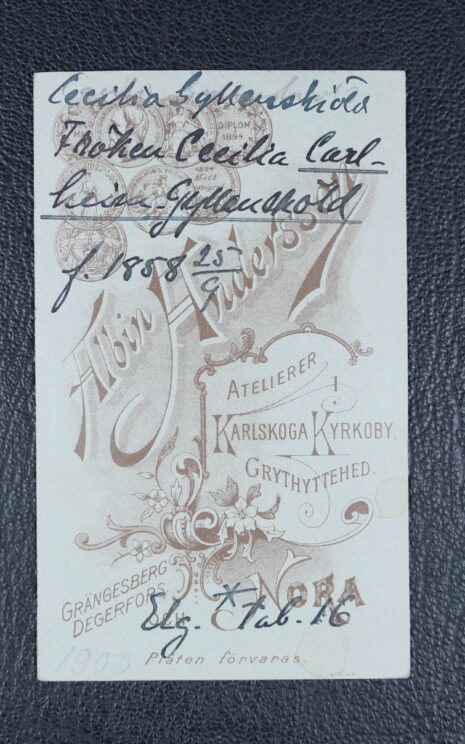 Cecilia Gyllensköld
Fröken Cecilia Carl-
heim-Gyllensköld
f. 1858 25/9
DIPLOM
1894
1894
Albin Andersson
ATELIERER
I
KARLSKOGA KYRKOBY.
GRYTHYTTEHED.
GRÄNGESBERG
DEGERFORS
NORA
Elg. * Tab. 16
1900
Plåten förvaras.